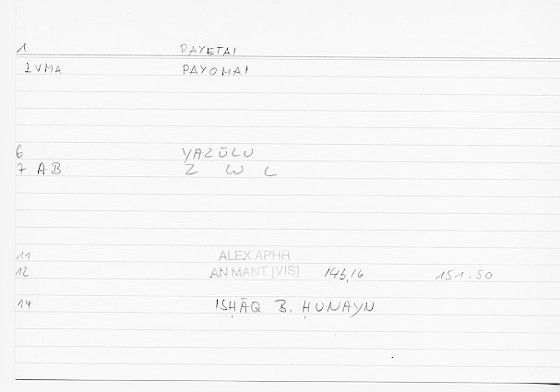 1 PAYETAI
1VMA PAYOMAI
6 YAZŪLU
7 AB Z W L
11 ALEX APHR
12 AN MANT [VIS] 143,16 151.50
14 ISḤĀQ B. ḤUNAYN